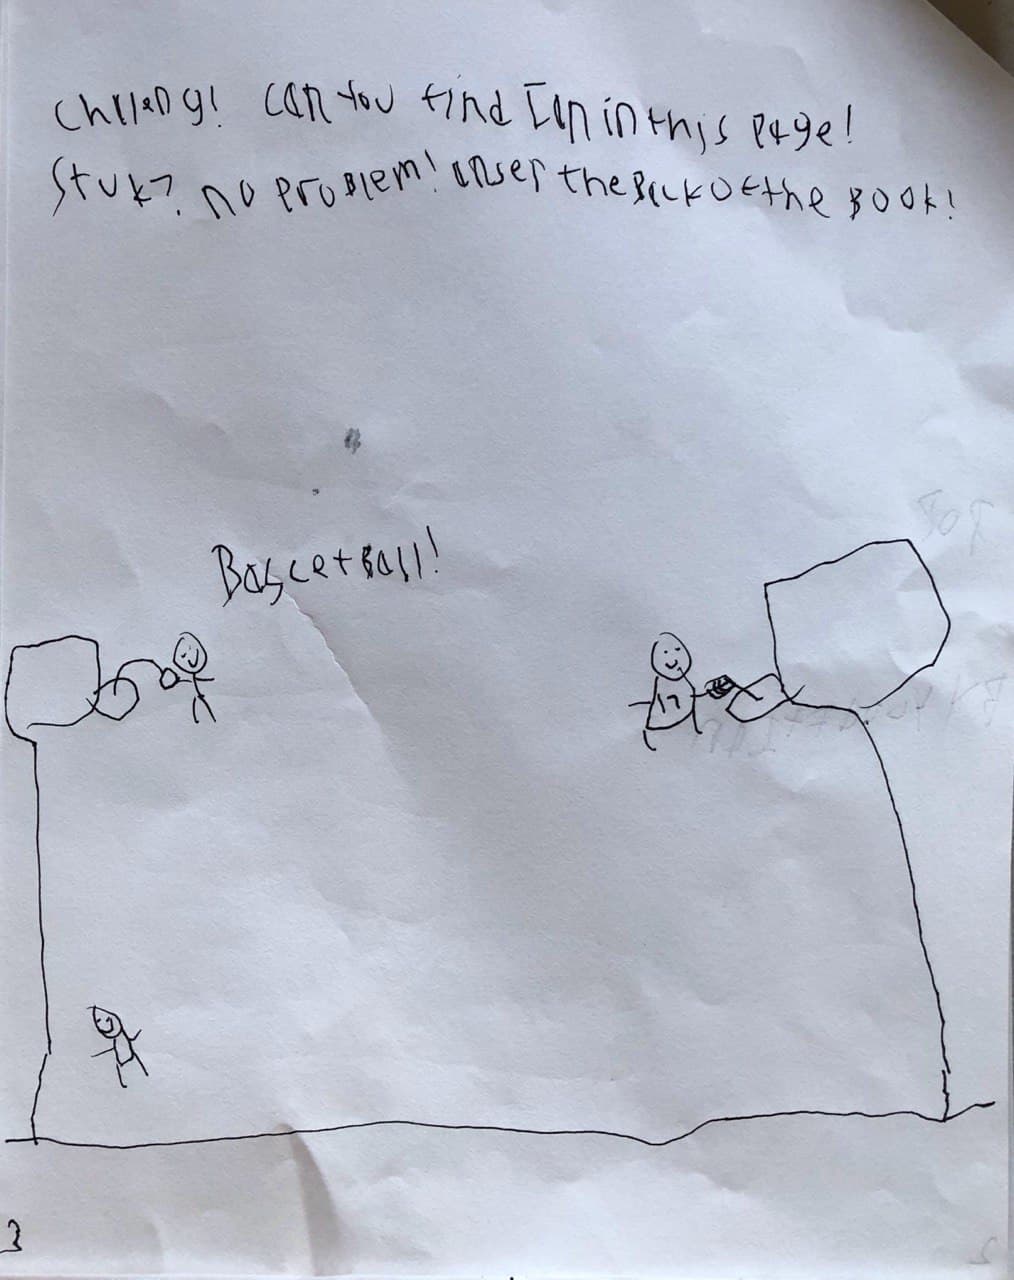 Chlleng! Can you find Ian in this page!
Stuk? no problem! anser the back of the book!
Bascet Ball!
17
3